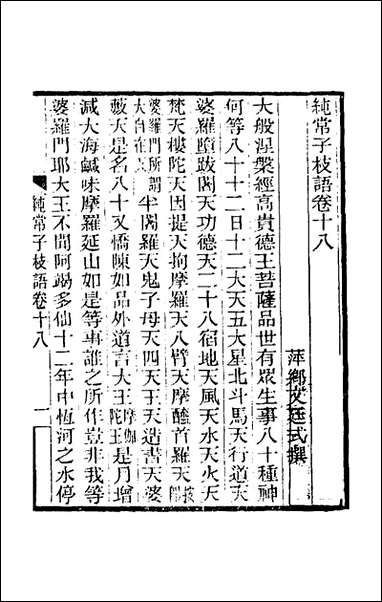 純常子枝語卷十八
萍鄉文廷式撰
大般涅槃經高貴德王菩薩品世有眾生事八十種神
何等八十十二日十二大天五大星北斗馬天行道天
婆羅墮跋闍天功德天二十八宿地天風天水天火天
梵天樓陀天因提天拘摩羅天八臂天摩醯首羅天按卽
婆羅門所謂大自在天半闍羅天鬼子母天四天王天造書天婆
藪天是名八十又憍陳如品外道言大王摩伽陀王是月增
減大海鹹味摩羅延山如是等事誰之所作豈非我等
婆羅門耶大王不聞阿竭多仙十二年中恆河之水停
純常子枝語卷十八
一